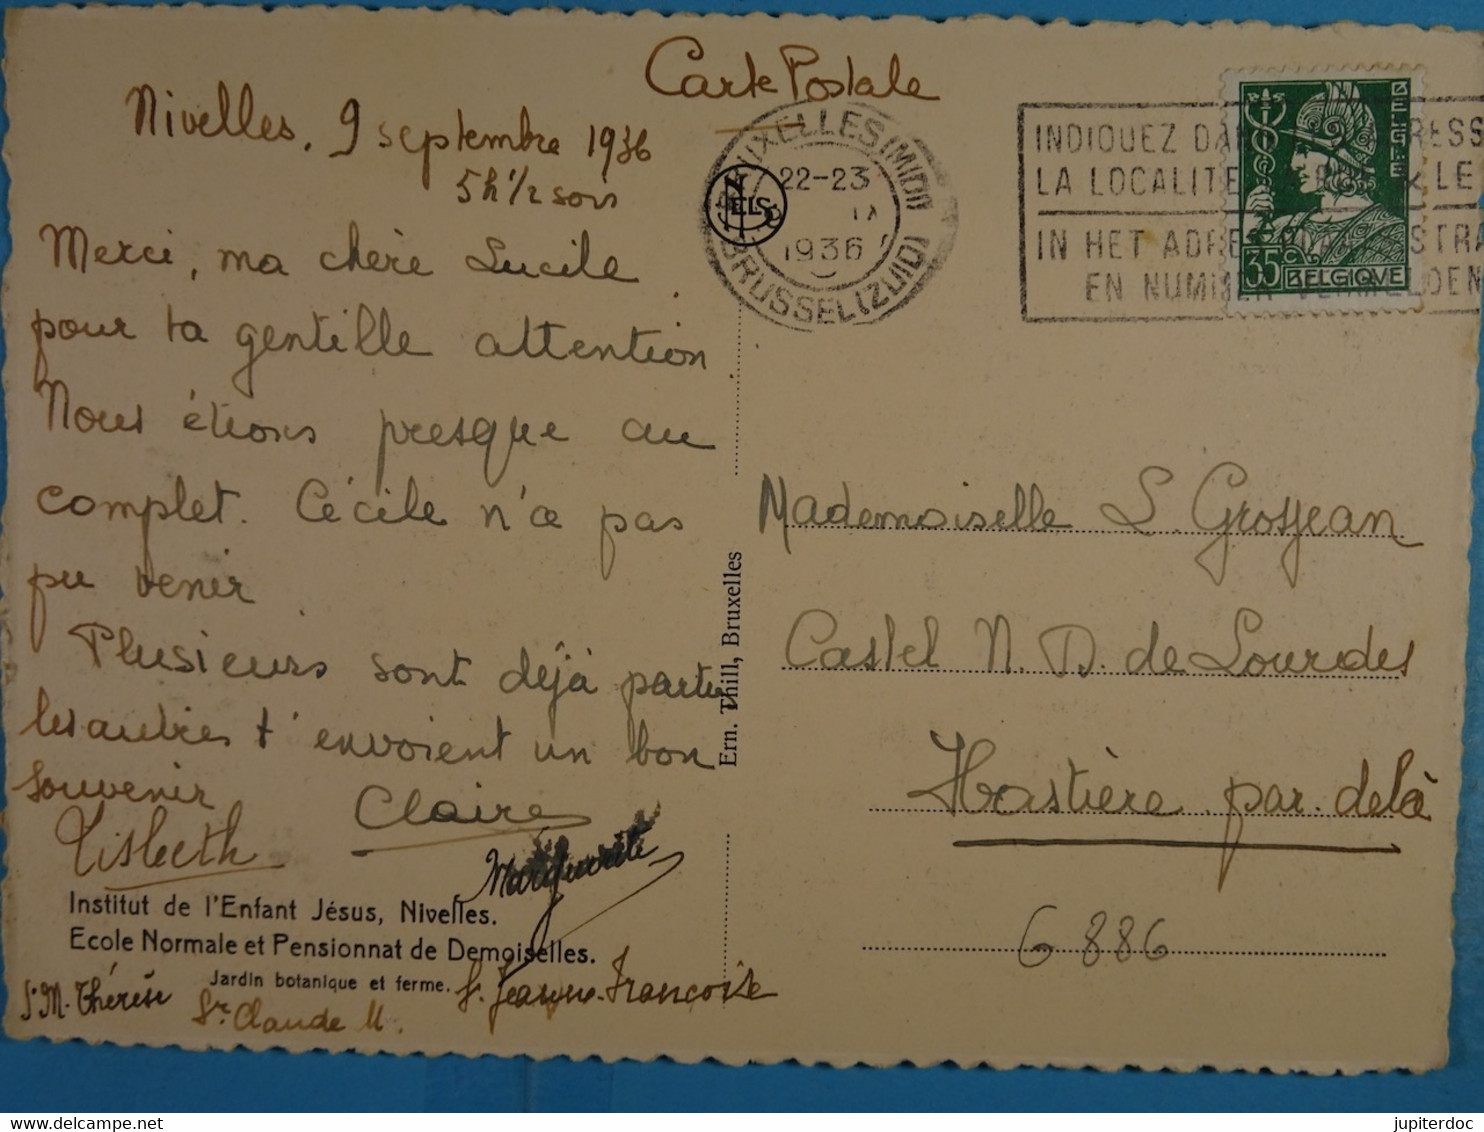 Carte Postale
Nivelles, 9 septembre 1936
5h 1/2 soir
Merci, ma chère Lucile
pour ta gentille attention
Nous étions presque au
complet. Cécile n'a pas
pu venir
Plusieurs sont déjà parties
les autres t'envoient un bon
souvenir
Claire
Lisbeth
Marguerite
Institut de l'Enfant Jésus, Nivelles.
Ecole Normale et Pensionnat de Demoiselles.
Jardin botanique et ferme.
Sr M. Thérèse
Sr. Claude M.
Sr. Jeanne-Françoise
Ern. Thill, Bruxelles
NELS
BRUXELLES (MIDI)
22-23
IX
1936
BRUSSEL (ZUID)
INDIQUEZ DA RESS
LA LOCALITE LE
IN HET ADRE STRA
EN NUMMER VERMELDEN
BELGIE
35 C BELGIQUE
Mademoiselle L. Grosjean
Castel N. D. de Lourdes
Hastière par. delà
6886
jupiterdoc